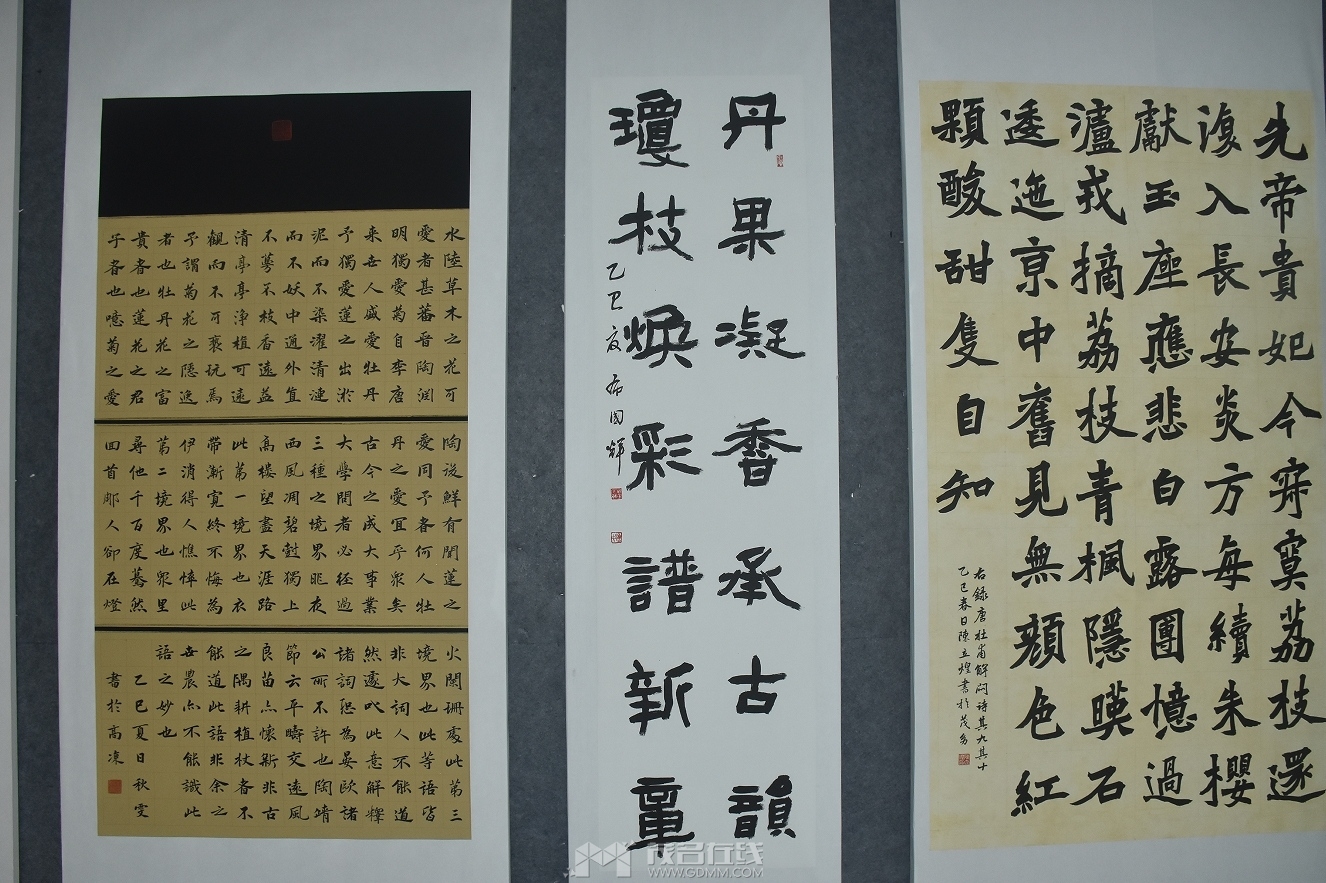 先帝貴妃今寂寞荔枝還
復入長安炎方每續朱櫻
獻玉座應悲白露團憶過
瀘戎摘荔枝青楓隱暎石
逶迤京中舊見無顏色紅
顆酸甜隻自知
右錄唐杜甫解悶詩其九其十
乙巳春日陳立煌書於茂名
丹果凝香承古韻
瓊枝煥彩譜新章
乙巳夏 布國輝
水陸草木之花可
愛者甚蕃晉陶淵
明獨愛菊自李唐
来世人盛愛牡丹
予獨愛蓮之出淤
泥而不染濯清漣
而不妖中通外直
不蔓不枝香遠益
清亭亭淨植可遠
觀而不可褻玩焉
予謂菊花之隱逸
者也牡丹花之富
貴者也蓮花之君
子者也噫菊之愛
陶後鮮有聞蓮之
愛同予者何人牡
丹之愛宜乎眾矣
古今之成大事業
大學問者必經過
三種之境界昨夜
西風凋碧樹獨上
高樓望盡天涯路
此第一境界也衣
帶漸寬終不悔為
伊消得人憔悴此
第二境界也眾里
尋他千百度驀然
回首那人卻在燈
火闌珊處此第三
境界也此等語皆
非大詞人不能道
然遽以此意解釋
諸詞恐為晏歐諸
公所不許也陶靖
節云平疇交遠風
良苗亦懷新非古
之隅耕植杖者不
能道此語非余之
世農亦不能識此
語之妙也
乙巳夏日秋雯
書於高凉
茂名在线
WWW.GDMM.COM